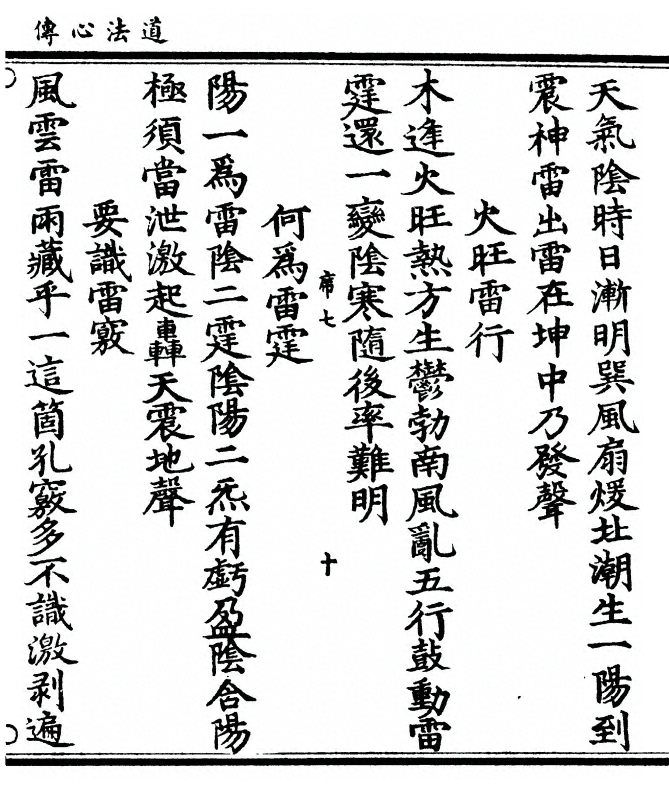 道法心傳
天氣陰時日漸明巽風扇煖坎潮生一陽到
震神雷出雷在坤中乃發聲
火旺雷行
木逢火旺熱方生鬱勃南風亂五行鼓動雷
霆還一變陰寒隨後率難明
席七
十
何爲雷霆
陽一爲雷陰二霆陰陽二炁有虧盈陰含陽
極須當泄激起轟天震地聲
要識雷竅
風雲雷雨藏乎一這箇孔竅多不識激剥遍